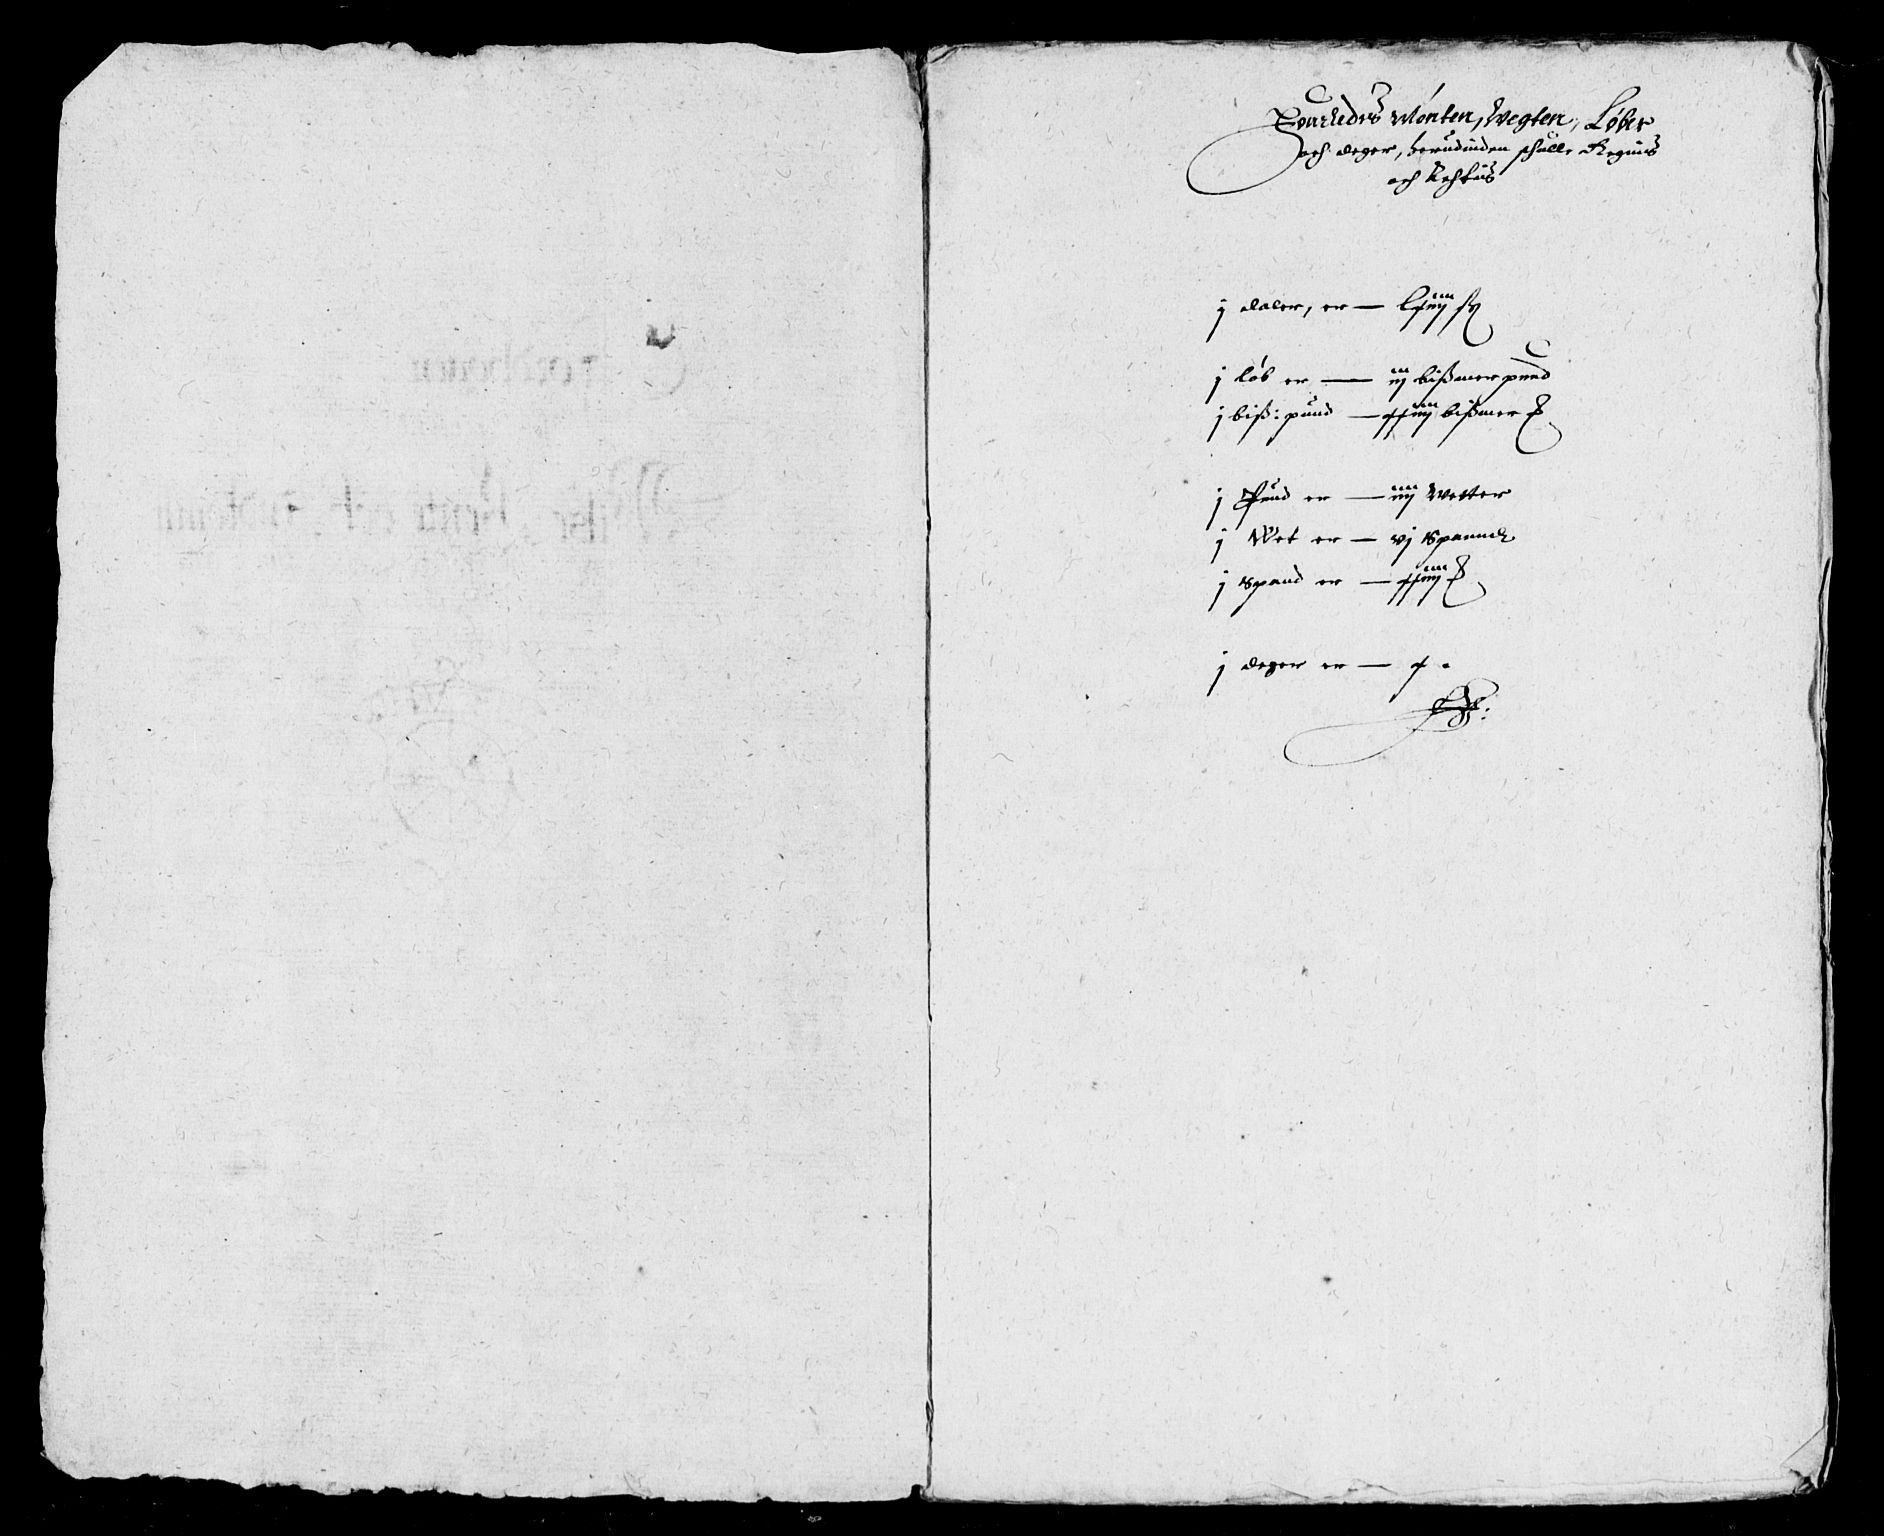 Huorledis Mönten, Wegten, Løber
och deger, herudinden schulle Regnis
och Kiestis
j daler, er — lxiiij sk
j løb er — iij bissmer pund
j biss: pund — xxiiij bissmer ℔
j Pund er — iiij wetter
j Wet er — vj Spannd
j Spand er — xxiiij ℔
j deger er — x .